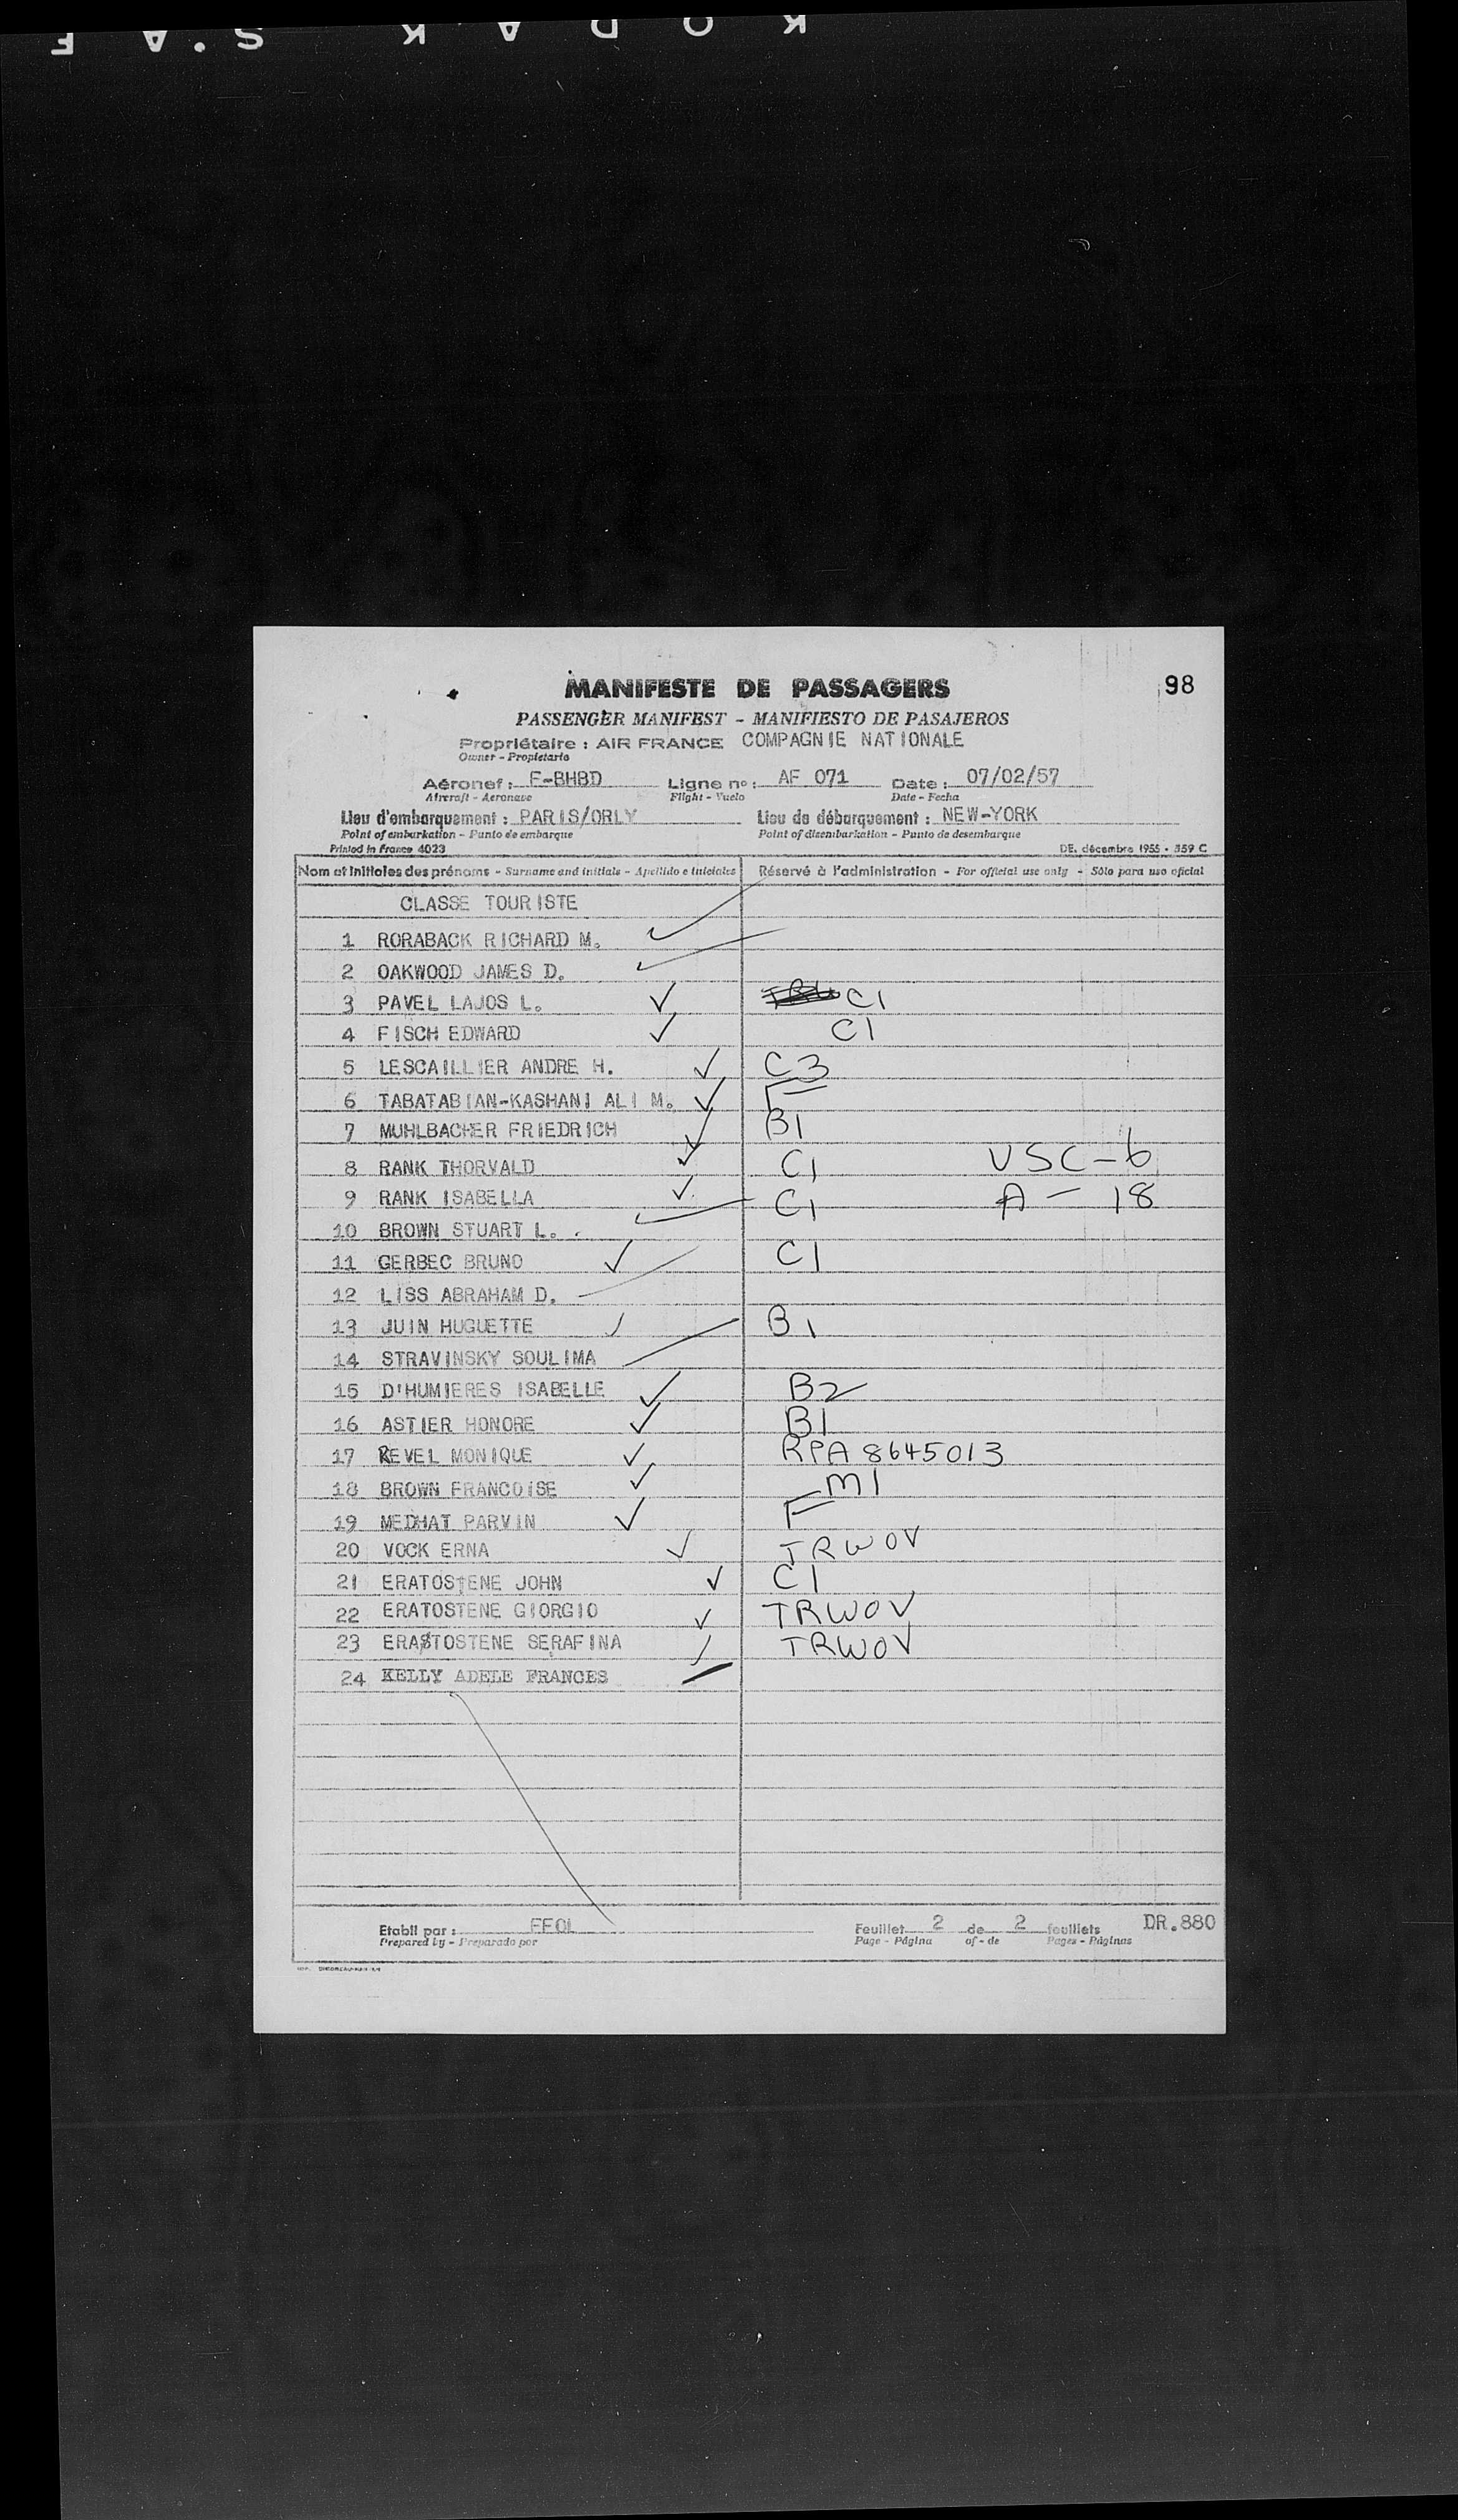 KODAK S.A F
MANIFESTE DE PASSAGERS 98
PASSENGER MANIFEST - MANIFIESTO DE PASAJEROS
Propriétaire : AIR FRANCE COMPAGNIE NATIONALE
Owner - Propietario
Aéronef : F-BHBD Ligne no : AF 071 Date : 07/02/57
Aircraft - Aeronave Flight - Vuelo Date - Fecha
Lieu d'embarquement : PARIS/ORLY Lieu de débarquement : NEW-YORK
Point of embarkation - Punto de embarque Point of disembarkation - Punto de desembarque
Printed in France 4023 DE. décembre 1955 - 359 C
Nom et initiales des prénoms - Surname and initials - Apellido e iniciales Réservé à l'administration - For official use only - Sólo para uso oficial
CLASSE TOURISTE
1 RORABACK RICHARD M.
2 OAKWOOD JAMES D.
3 PAVEL LAJOS L. C1
4 FISCH EDWARD C1
5 LESCAILLIER ANDRE H. C3
6 TABATABIAN-KASHANI ALI M. F
7 MUHLBACHER FRIEDRICH B1
8 RANK THORVALD C1 USC-6
9 RANK ISABELLA C1 A - 18
10 BROWN STUART L.
11 GERBEC BRUNO C1
12 LISS ABRAHAM D.
13 JUIN HUGUETTE B1
14 STRAVINSKY SOULIMA
15 D'HUMIERES ISABELLE B2
16 ASTIER HONORE B1
17 REVEL MONIQUE RPA 8645013
18 BROWN FRANCOISE M1
19 MEDHAT PARVIN F
20 VOCK ERNA TRWOV
21 ERATOSTENE JOHN C1
22 ERATOSTENE GIORGIO TRWOV
23 ERASTOSTENE SERAFINA TRWOV
24 KELLY ADELE FRANCES
Etabli par : Feuillet 2 de 2 feuillets DR.880
Prepared by - Preparado por Page - Página of - de Pages - Páginas